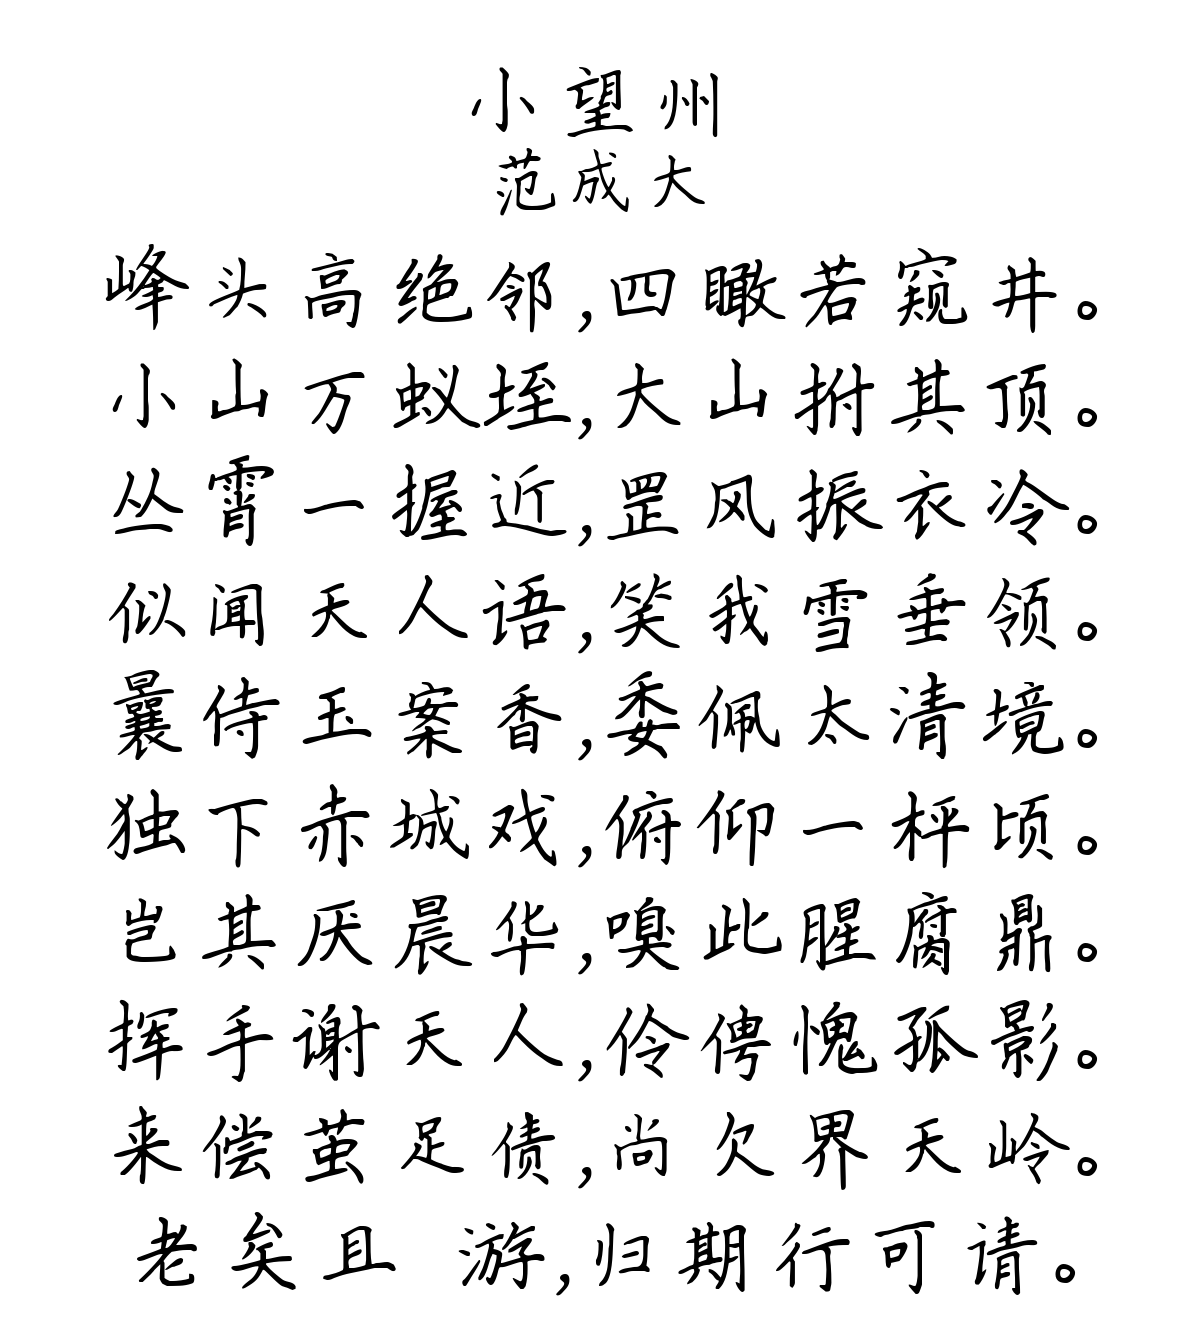 小望州
范成大
峰头高绝邻,四瞰若窥井。
小山万蚁垤,大山拊其顶。
丛霄一握近,罡风振衣冷。
似闻天人语,笑我雪垂领。
曩侍玉案香,委佩太清境。
独下赤城戏,俯仰一枰顷。
岂其厌晨华,嗅此腥腐鼎。
挥手谢天人,伶俜愧孤影。
来偿茧足债,尚欠界天岭。
老矣且 游,归期行可请。